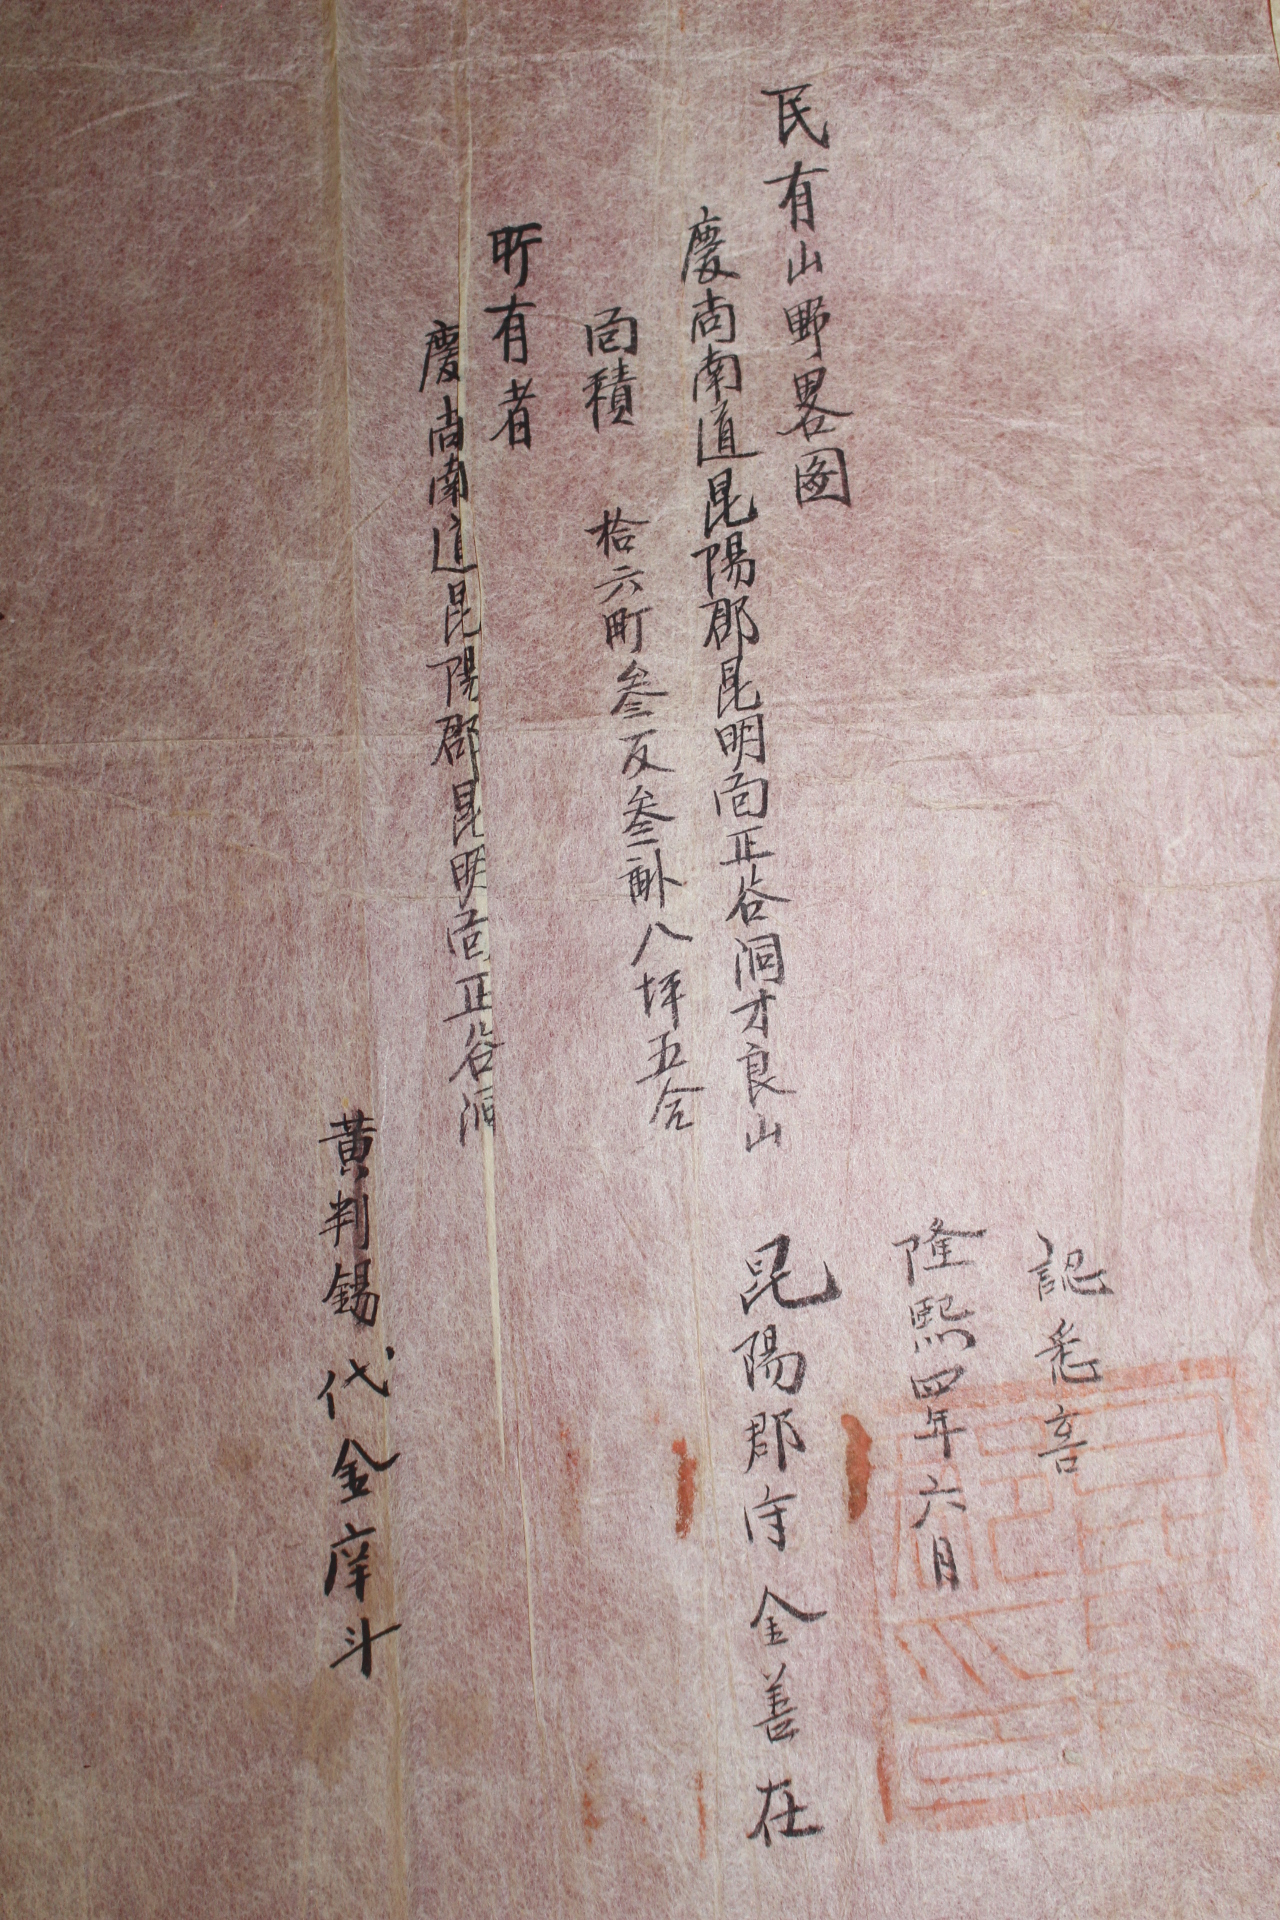 認悉
隆熙四年六月
民有山野畧圖
昆陽郡守金善在
慶尚南道昆陽郡昆明面正谷洞才良山
面積 拾六町叁反叁畝八坪五合
所有者
慶尚南道昆陽郡昆明面正谷洞
黃判錫 代金庠斗